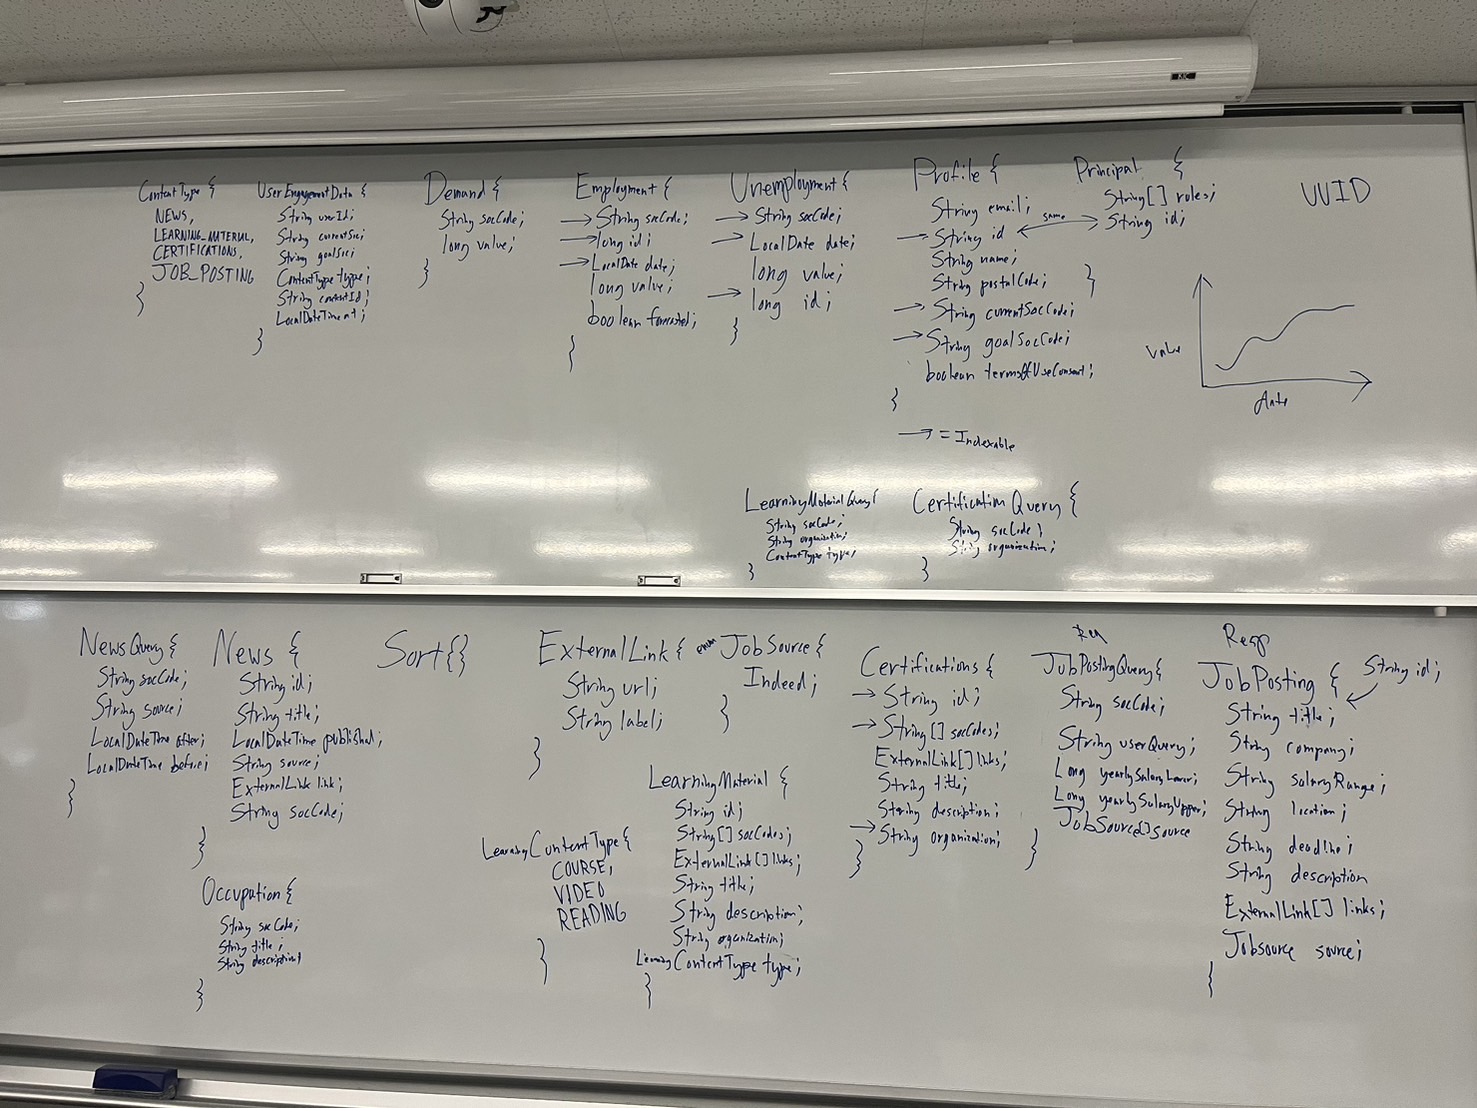 ContentType {
NEWS,
LEARNING_MATERIAL,
CERTIFICATIONS,
JOB_POSTING
}
UserEngagementData {
String userId;
String currentSoc;
String goalSoc;
ContentType type;
String contentId;
LocalDateTime at;
}
Demand {
String socCode;
long value;
}
Employment {
→ String socCode;
→ long id;
→ LocalDate date;
long value;
boolean forecasted;
}
Unemployment {
→ String socCode;
→ LocalDate date;
long value;
→ long id;
}
Profile {
String email;
→ String id
String name;
String postalCode;
→ String currentSocCode;
→ String goalSocCode;
boolean termsOfUseConsent;
}
→ = Indexable
same
Principal {
String[] roles;
String id;
}
UUID
Value
Date
LearningMaterialQuery {
String socCode;
String organization;
ContentType type;
}
CertificationQuery {
String socCode;
String organization;
}
NewsQuery {
String socCode;
String source;
LocalDateTime after;
LocalDateTime before;
}
News {
String id;
String title;
LocalDateTime published;
String source;
ExternalLink link;
String socCode;
}
Occupation {
String socCode;
String title;
String description;
}
Sort {}
ExternalLink {
String url;
String label;
}
enum JobSource {
Indeed;
}
LearningContentType {
COURSE,
VIDEO
READING
}
LearningMaterial {
String id;
String[] socCodes;
ExternalLink[] links;
String title;
String description;
String organization;
LearningContentType type;
}
Certifications {
→ String id;
→ String[] socCodes;
ExternalLink[] links;
String title;
String description;
→ String organization;
}
Req
JobPostingQuery {
String socCode;
String userQuery;
Long yearlySalaryLower;
Long yearlySalaryUpper;
JobSource[] source
}
Resp
JobPosting {
String id;
String title;
String company;
String salaryRange;
String location;
String deadline;
String description
ExternalLink[] links;
Jobsource source;
}